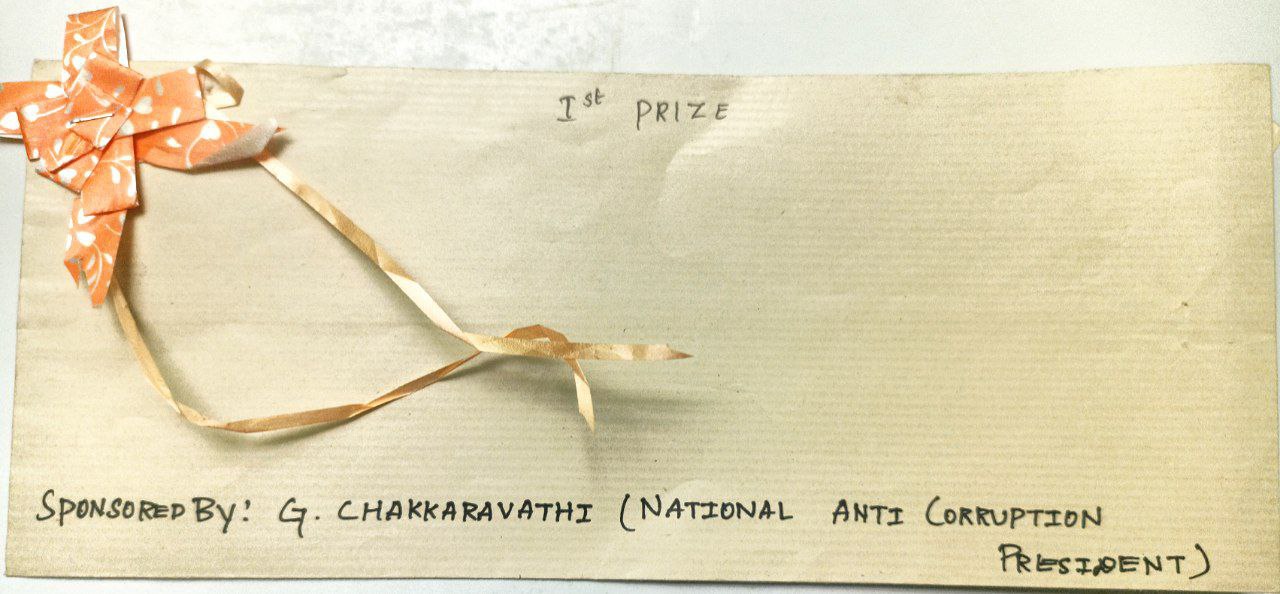 1st PRIZE
SPONSORED BY: G. CHAKKARAVATHI (NATIONAL ANTI CORRUPTION
PRESIDENT)